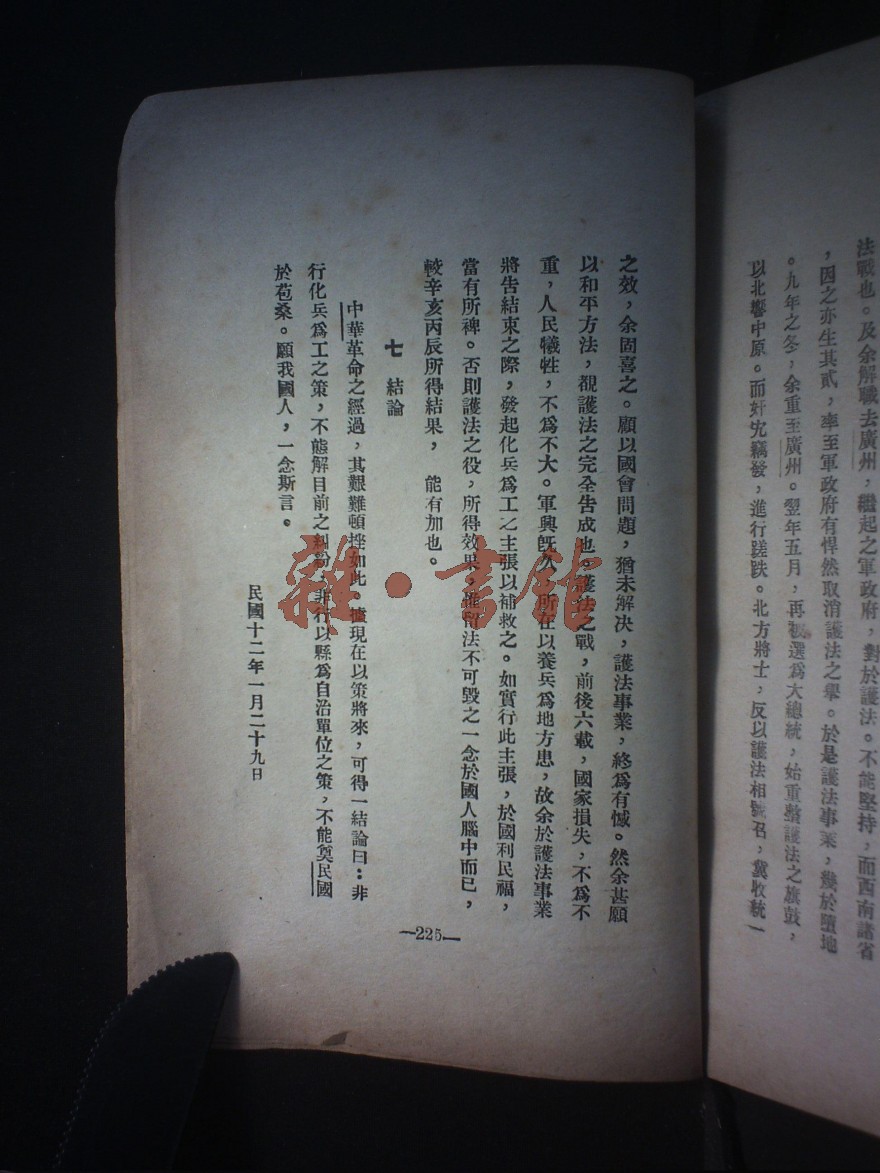 法戰也。及余解職去廣州，繼起之軍政府，對於護法。不能堅持，而西南諸省
，因之亦生其貳，率至軍政府有悍然取消護法之舉。於是護法事業，幾於墮地
。九年之冬，余重至廣州。翌年五月，再被選為大總統，始重整護法之旗鼓，
以北嚮中原。而奸宄竊發，進行蹉跌。北方將士，反以護法相號召，冀收統一
之效，余固喜之。顧以國會問題，猶未解决，護法事業，終爲有憾。然余甚願
以和平方法，覩護法之完全告成也。護法之戰，前後六載，國家損失，不爲不
重，人民犧牲，不爲不大。軍興旣久，所在以養兵爲地方患，故余於護法事業
將告結束之際，發起化兵爲工之主張以補救之。如實行此主張，於國利民福，
當有所裨。否則護法之役，所得效果，惟留法不可毀之一念於國人腦中而已，
較辛亥丙辰所得結果，　能有加也。
七　結論
中華革命之經過，其艱難頓挫如此 據現在以策將來，可得一結論曰：非
行化兵爲工之策，不態解目前之糾紛，非行以縣爲自治單位之策，不能奠民國
於苞桑。願我國人，一念斯言。
民國十二年一月二十九日
—225—
雜·書館